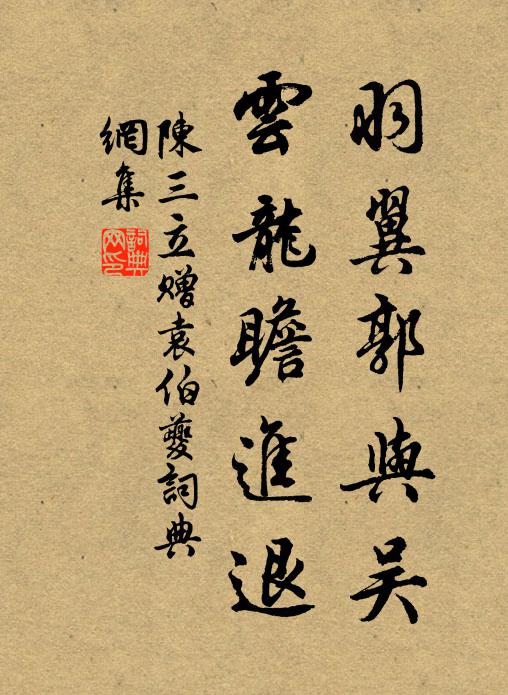 羽翼郭與吴
雲龍瞻進退
陳三立赠袁伯夔詞典
網集
詞典網印